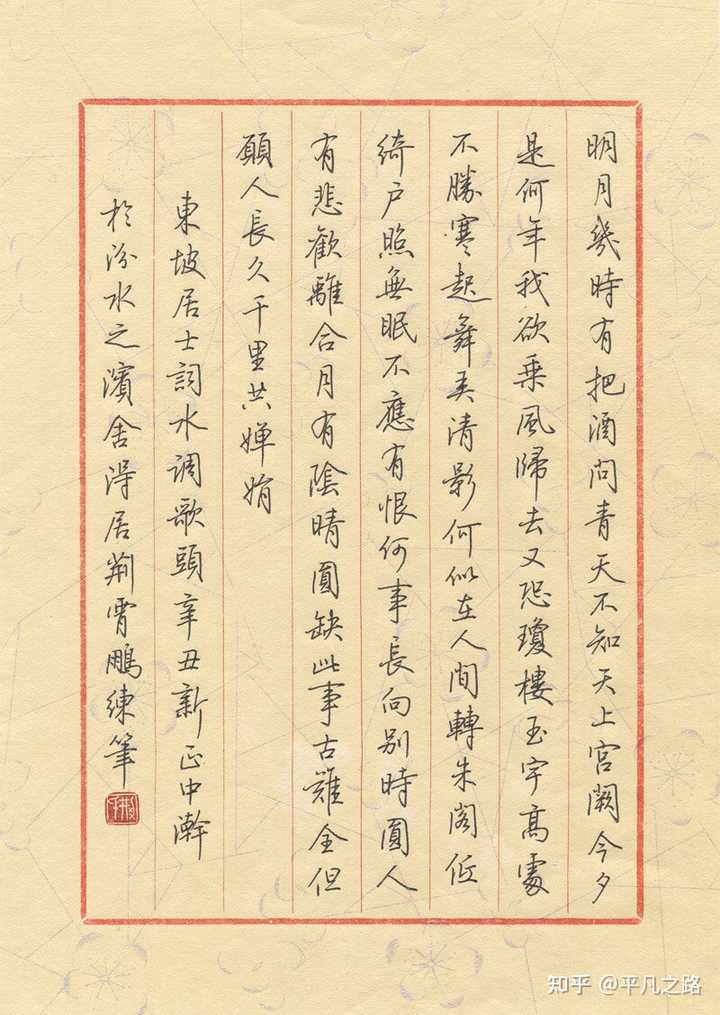 明月幾時有把酒問青天不知天上宮闕今夕
是何年我欲乗風歸去又恐瓊樓玉宇髙處
不勝寒起舞弄清影何似在人間轉朱閣低
綺户照無眠不應有恨何事長向别時圓人
有悲歡離合月有陰晴圓缺此事古難全但
願人長久千里共嬋娟
東坡居士詞水調歌頭辛丑新正中澣
於汾水之濱舍得居荆霄鵬練筆
知乎 @平凡之路